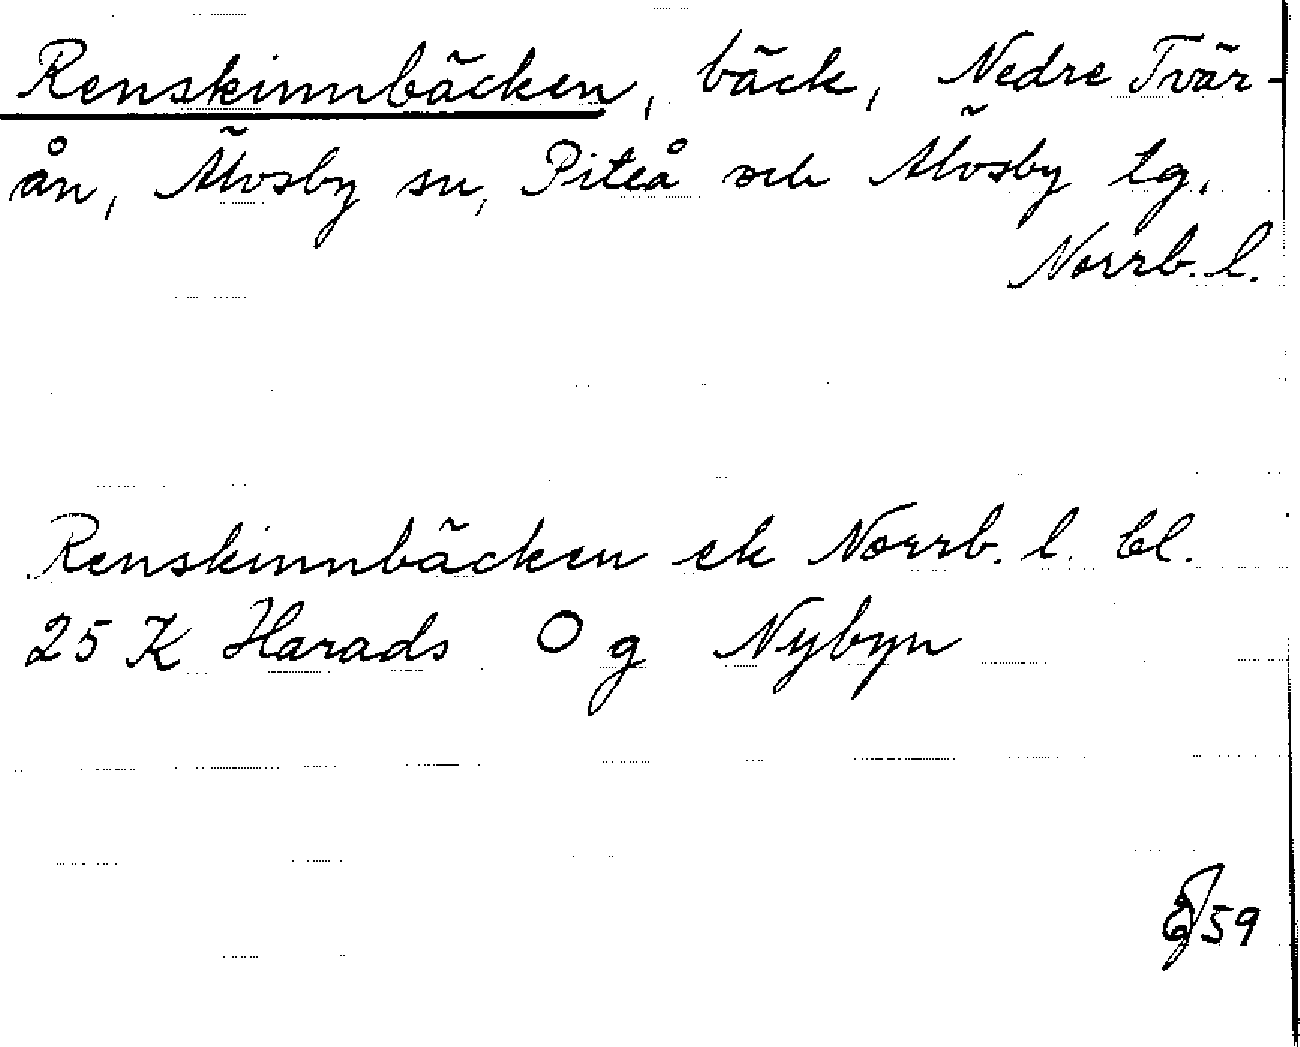 Renskinnbäcken, bäck, Nedre Tvär-
ån, Älvsby sn, Piteå och Älvsby tg.
Norrb. l.
Renskinnbäcken ek Norrb. l. bl.
25 K Harads O g Nybyn
59